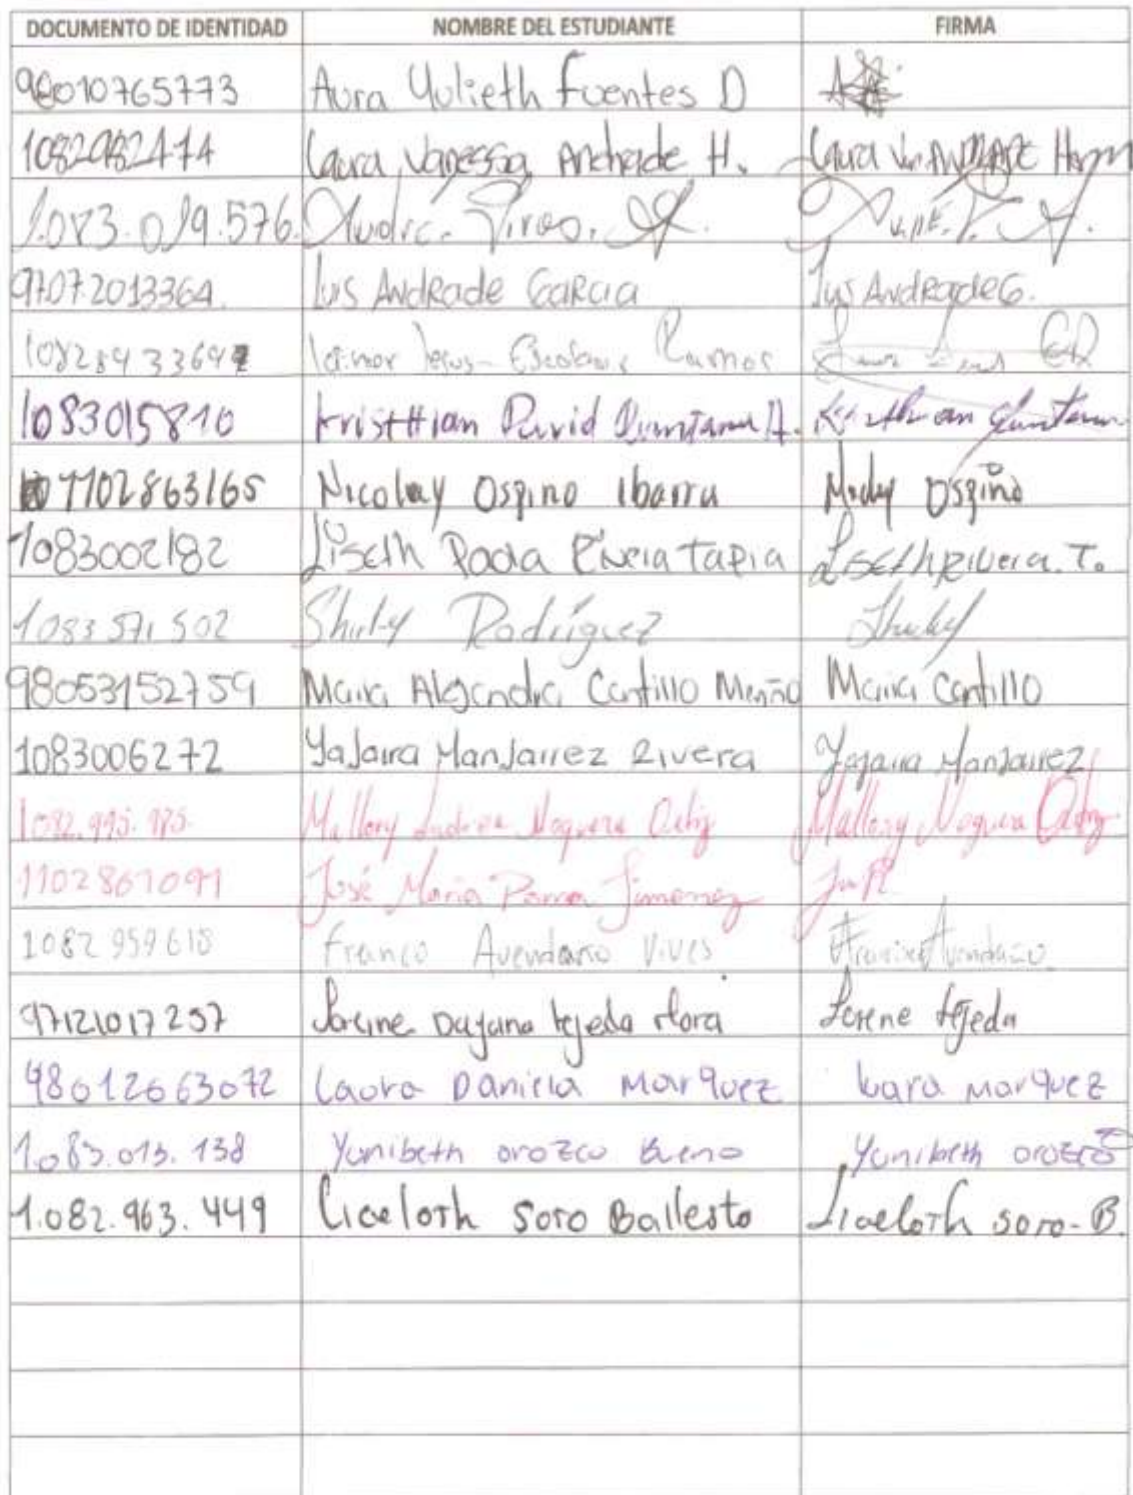 DOCUMENTO DE IDENTIDAD NOMBRE DEL ESTUDIANTE FIRMA
98010765773 Aura Yulieth Fuentes D
1082982474 Laura Vanessa Andrade H. Laura
1.083.019.576.
97072013364. Luis Andrade Garcia Luis Andrade G.
Jesus Ramos
1083015810 KristHian David Quintana A. Kristhian Quintana
1102863165 Nicolay Ospino Ibarra Ospino
1083002182 Liseth Paola Rivera Tapia Liseth Rivera. T.
1083571502 Shirly Rodríguez Shirly
98053152759 Maira Alejandra Cantillo Maira Cantillo
1083006272 Yajaira Manjarrez Rivera Yajaira Manjarrez
1.082.995.975. Mallory Andrea Noguera Ortiz Mallory Noguera Ortiz
1102867091 José María Parra Jimenez
1082959618 Franco Avendaño Vives Franco Avendaño
97121017257 Dayana tejeda tejeda
98012663072 Laura Daniela Marquez Laura Marquez
1.083.013.138 Yunibeth orozco Bueno Yunibeth orozco
1.082.963.449 Liceloth Soto Ballesto Liceloth soto-B.